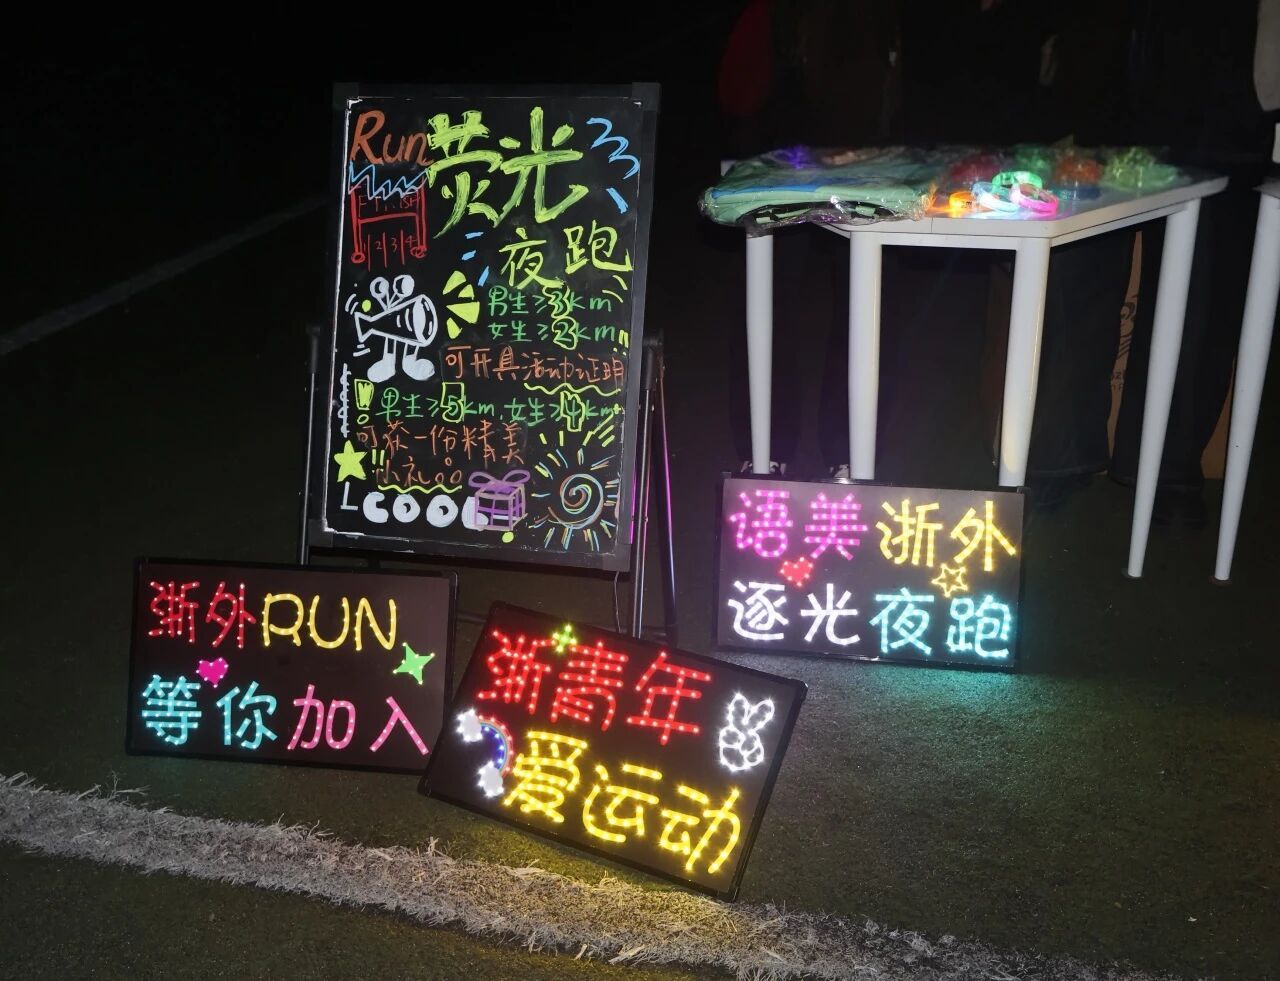 Run
荧光
FINISH
1 2 3 4
夜跑
男生≥3km
女生≥2km
可开具活动证明
男生≥5km,女生≥4km
可获一份精美
小礼。。
COOL
浙外RUN
等你加入
浙青年
爱运动
语美浙外
逐光夜跑